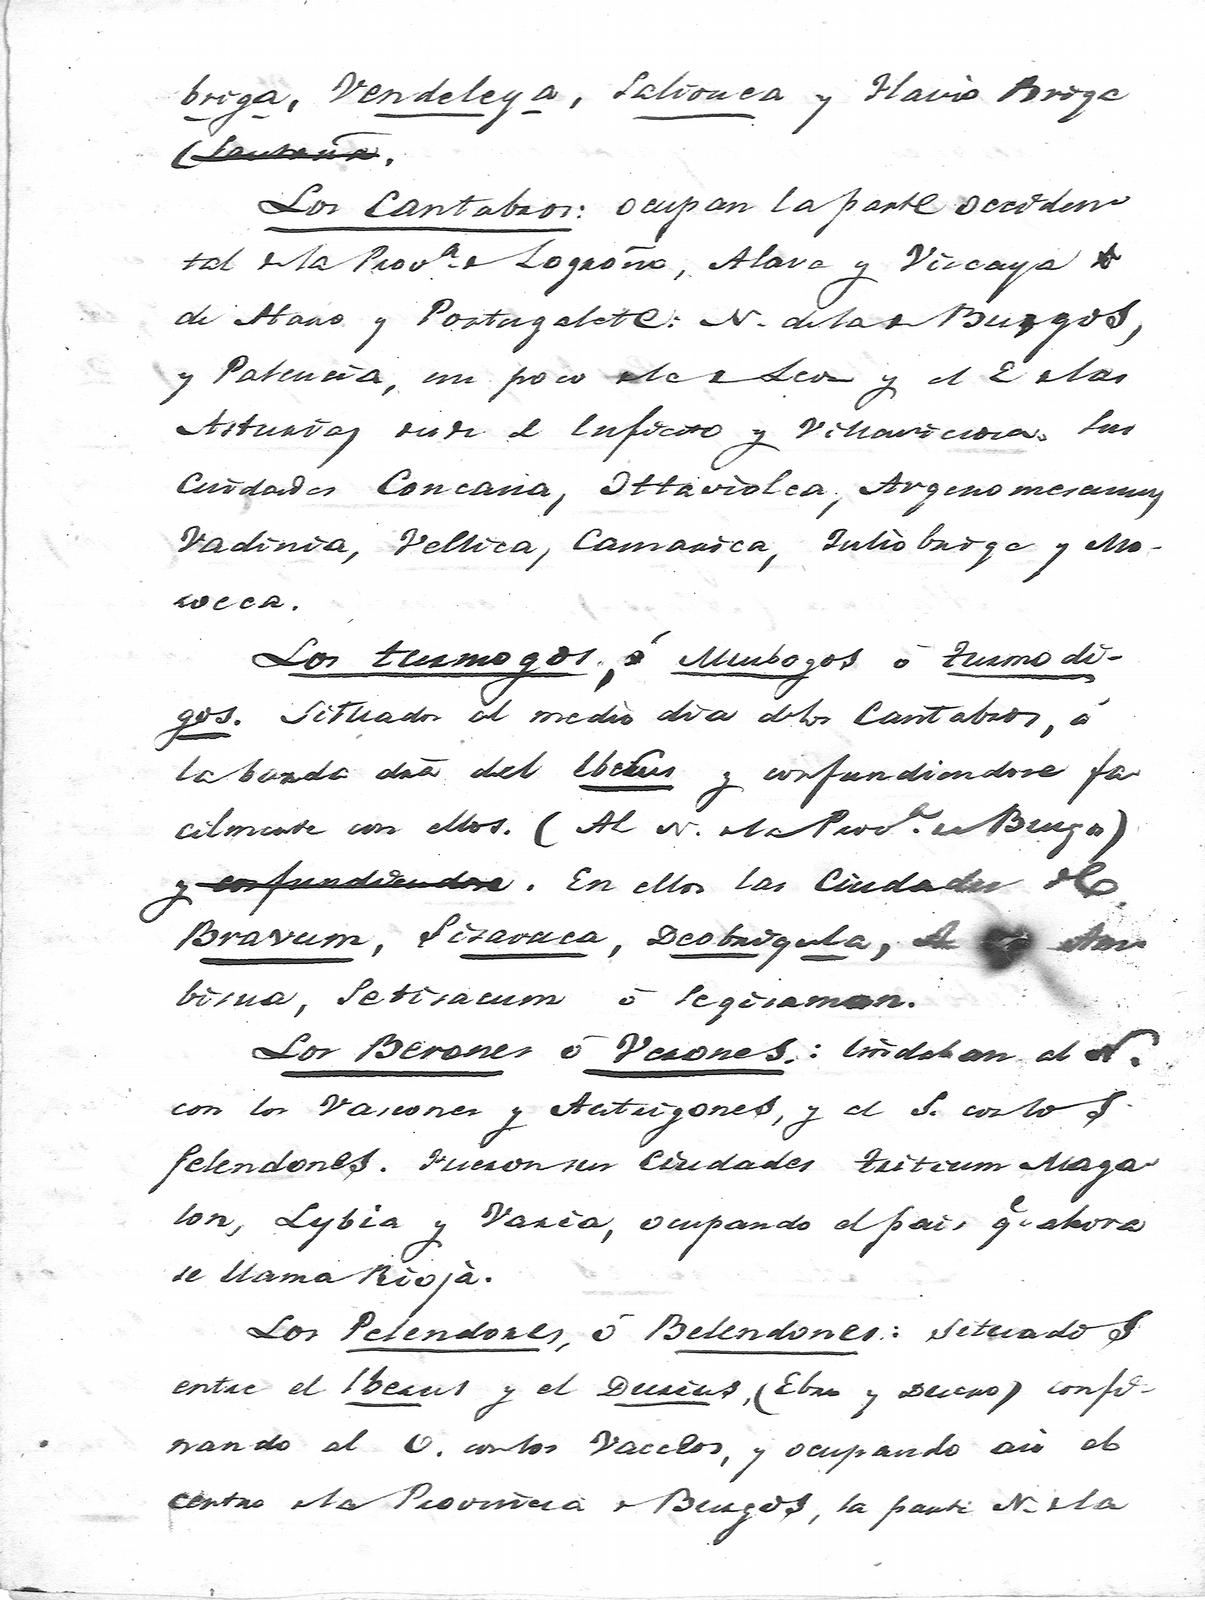 briga, Vendeleya, Salionca y Flavio Briga
(Santoña.
Los Cantabros: ocupan la parte occiden-
tal de la Prov.a de Logroño, Alava y Viscaya
de Haro y Portugalete: N. de la de Burgos,
y Palencia, un poco de la de Leon y el E de las
Asturias desde el Infiesto y Villaviciosa. Sus
Ciudades Concana, Ottaviolca, Argenomescum,
Vadinia, Vellica, Camarica, Juliobriga y Mo-
roeca.
Los turmogos, ó Murbogos ó turmodi-
gos. Situados al medio dia de los Cantabros, á
la banda dra del Iberus y confundiendose fa-
cilmente con ellos. (Al N. de la Prov.a de Burgos)
y confundiendose. En ellos las Ciudades de
Bravum, Sisaraca, Deobrigula, Am-
bisna, Setisacum ó Segisamon.
Los Berones ó Verones.: lindaban al N.
con los Vascones y Autrigones, y el S. con los
Pelendones. Fueron sus Ciudades tritium Maga-
lon, Lybia y Varia, ocupando el pais qe ahora
se llama Rioja.
Los Pelendones, ó Belendones: Situados
entre el Iberus y el Durius, (Ebro y Duero) confi-
nando al O. con los Vacceos, y ocupando asi el
centro de la Provincia de Burgos, la parte N. de la